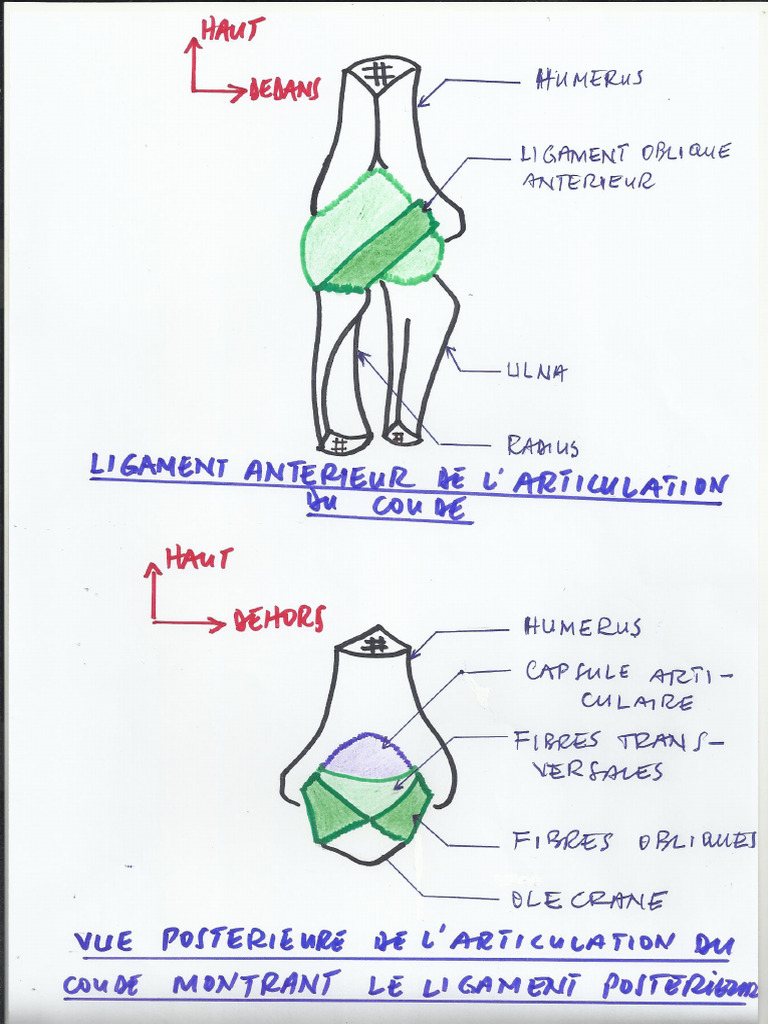 HAUT
DEDANS
HUMERUS
LIGAMENT OBLIQUE
ANTERIEUR
ULNA
RADIUS
LIGAMENT ANTERIEUR DE L'ARTICULATION
DU COUDE
HAUT
DEHORS
HUMERUS
CAPSULE ARTI-
CULAIRE
FIBRES TRANS-
VERSALES
FIBRES OBLIQUES
OLECRANE
VUE POSTERIEURE DE L'ARTICULATION DU
COUDE MONTRANT LE LIGAMENT POSTERIEUR